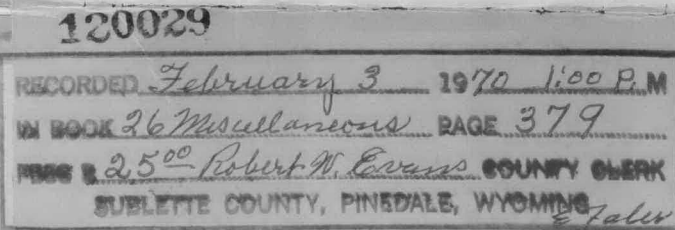 120029
RECORDED February 3 1970 1:00 P.M
IN BOOK 26 Miscellaneous PAGE 379
FEES $ 25 00 Robert W. Evans COUNTY CLERK
SUBLETTE COUNTY, PINEDALE, WYOMING
E Faler